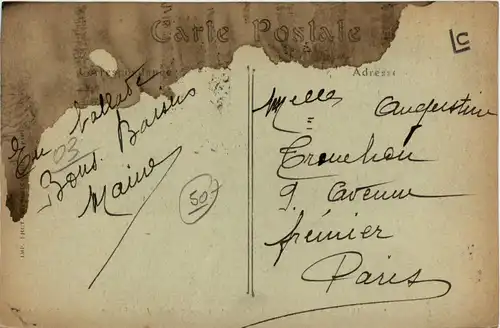 Carte Postale
Correspondance
Adresse
LC
En ballade
03
Bons Baisers
Marie
507
Melle Augustine
Trouchon
9. Avenue
frémier
Paris